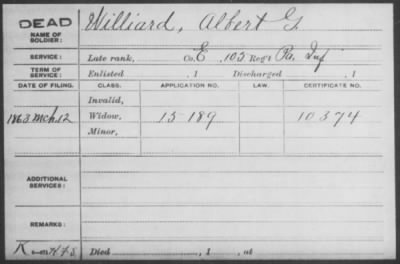 DEAD Williard, Albert G.
NAME OF SOLDIER:
SERVICE: Late rank, Co. E, 103 Reg't Pa. Inf
TERM OF SERVICE: Enlisted , 1 Discharged , 1
DATE OF FILING. CLASS. APPLICATION NO. LAW. CERTIFICATE NO.
Invalid,
1863 Mch. 12 Widow, 15189 10374
Minor,
ADDITIONAL SERVICES:
REMARKS:
Died , 1 , at